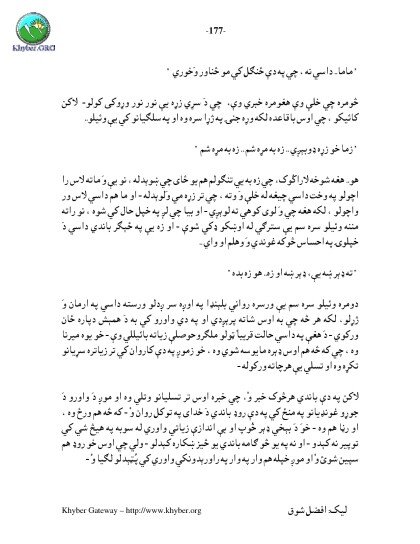 -177-
Khyber.ORG
"ماما۔ داسې نه ، چې په دې ځنګل کې مو ځناور وَخوري "
څومره چې خلې وې هغومره خبرې وې، چې دَ سړي زړه یې نور نور وړوکی کولو- لاکن
کائیکو ، چې اوس باقاعده لکه وړه جنۍ په ژړا سره وه او په سلګیانو کې یې وئیلو۔
"زما خو زړه ډوبېږي.. زه به مړه شم.. زه به مړه شم "
هو۔ هغه شوخه لاړاګوک، چې زه به یې تنګولم هم یو ځای چې ښویدله ، نو یې وَ ماته لاس را
اچولو په وخت داسې چیغه له خلې وَ وته ، چې تر زړه مې ولویدله - او ما هم داسې لاس ور
واچولو ، لکه هغه چې وَ لوی کوهي ته لوېږي - او بیا چې لږ په خپل حال کې شوه ، نو راته
مننه وئیلو سره سم یې سترګې له اوښکو ډکې شوې - او زه یې په ځیګر باندې داسې دَ
خپلوۍ په احساس څوکه غوندې وَ وهلم او وای..
"ته ډېر ښه یې، ډېر ښه او زه۔ هو زه بده "
دومره وئیلو سره سم یې ورسره روانې بلېنډا په اوږه سر ږدلو ورسته داسې په ارمان وَ
ژړلو، لکه هر څه چې به اوس شاته پرېږدي او په دې واورو کې به دَ همېش دپاره ځان
ورکوي - دَ هغې په داسې حالت قریباً ټولو ملګرو حوصلې زیاته بائیللې وې - خو یوه میرنا
وه ، چې که څه هم اوس ډېره مایوسه شوې وه ، خو زموږ په دې کاروان کې تر زیاتره سړیانو
تکړه وه او تسلي یې هرچاته ورکوله-
لاکن په دې باندې هرڅوک خبر وُ، چې خبره اوس تر تسلیانو وتلې وه او موږ دَ واورو دَ
جوړو غونډیانو په منځ کې په دې روډ باندې دَ خدای په توکل روان وُ - که څه هم ورځ وه ،
او رڼا هم وه - خو دَ یېخي ډېر څوپ او بې اندازې زیاتې واورې له سوبه په هیڅ شي کې
توپیر نه کېدو - او نه په یو څو ګامه باندې یو څیز ښکاره کېدلو - ولې چې اوس خو روډ هم
سپین شوئ وُ او موږ خپله هم وار په وار په راورېدونکي واورې کې پُټېدلو لګیا وُ-
Khyber Gateway – http://www.khyber.org
لیک: افضل شوق